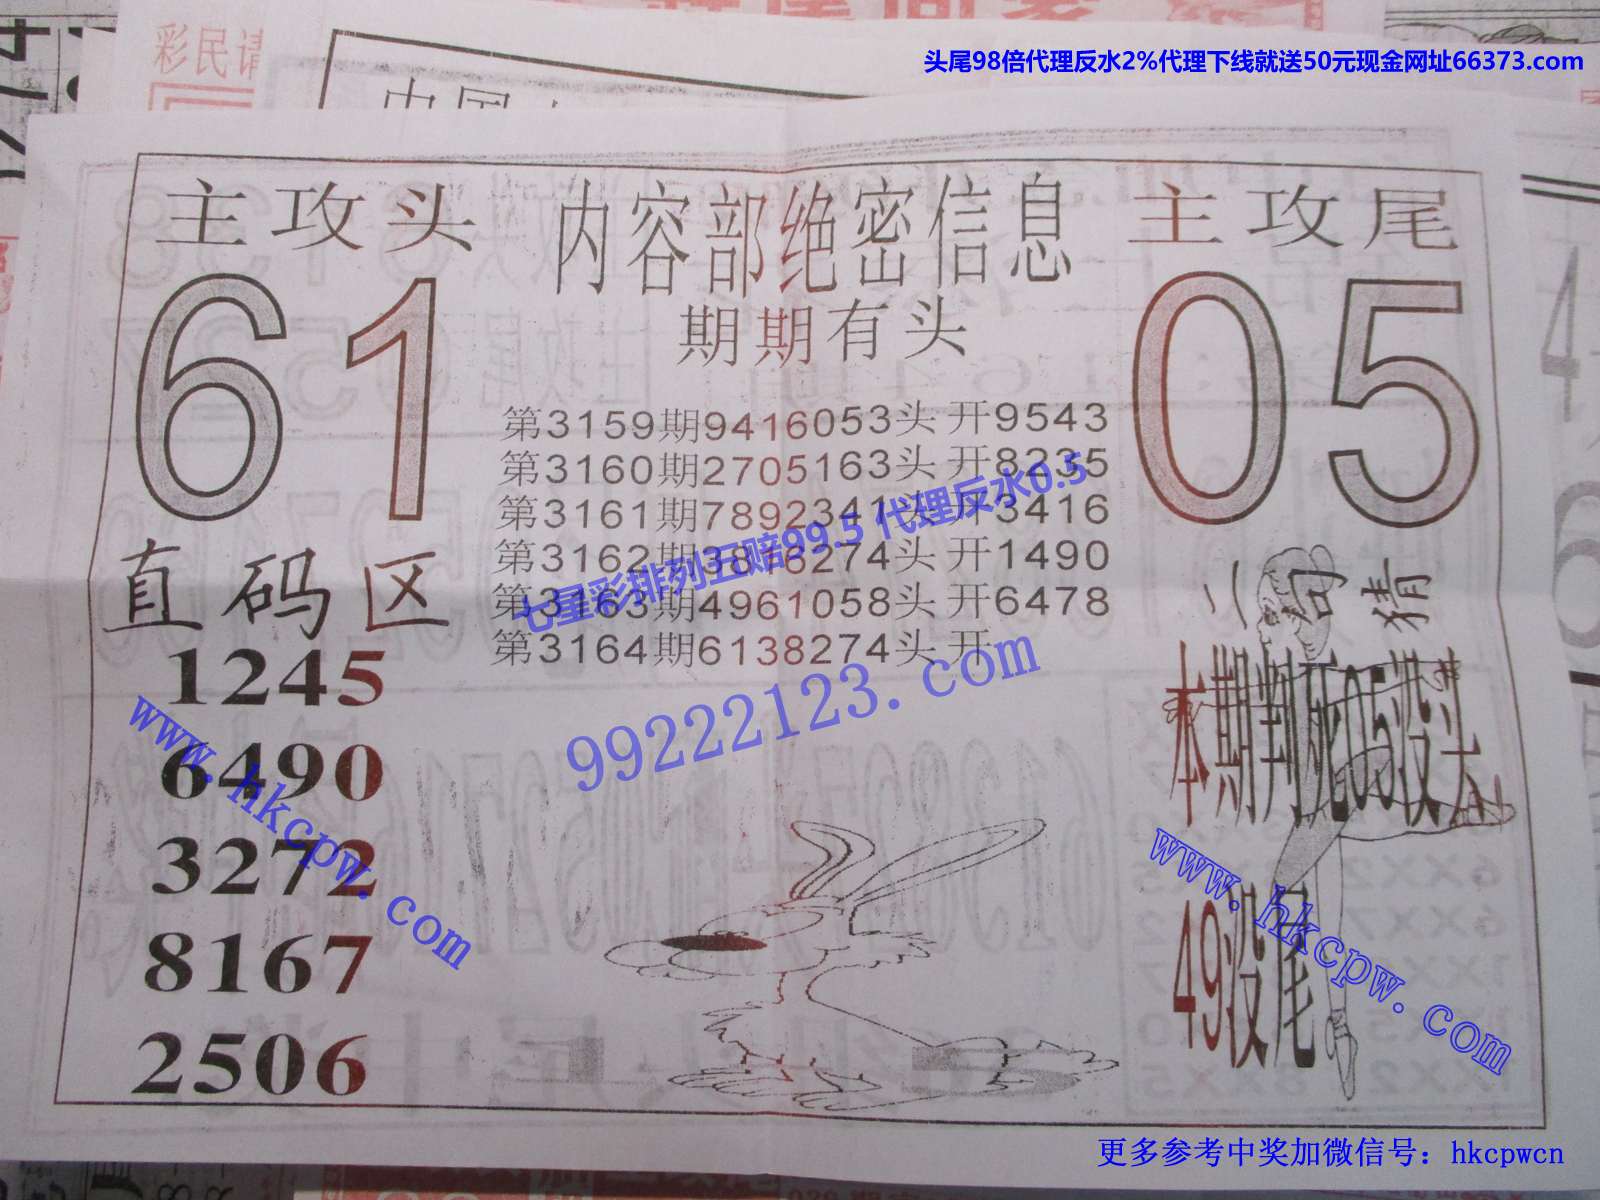 彩民请
头尾98倍代理反水2%代理下线就送50元现金网址66373.com
主攻头
61
内容部绝密信息
期期有头
主攻尾
05
第3159期9416053头 开9543
第3160期2705163头 开8235
第3161期7892341头 开3416
第3162期3818274头 开1490
第3163期4961058头 开6478
第3164期6138274头 开
七星彩排列五赔99.5 代理反水0.5
99222123.com
直码区
1245
6490
3272
8167
2506
www.hkcpw.com
二句猜
本期判死05没头
49没尾
www.hkcpw.com
更多参考中奖加微信号：hkcpwcn